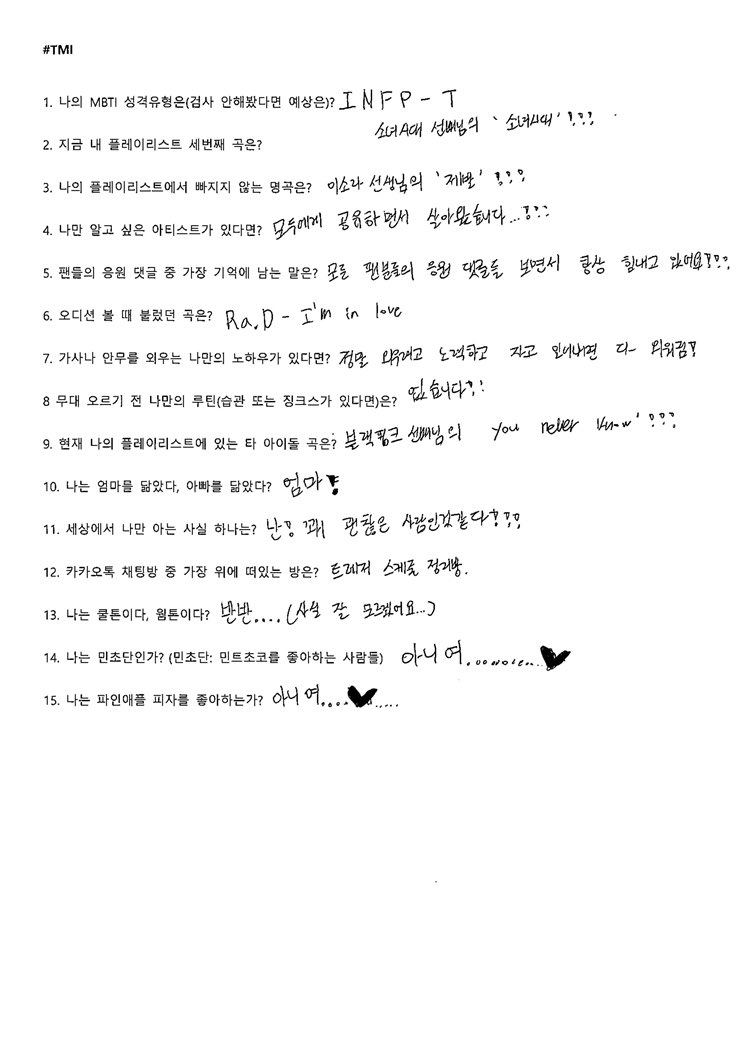 #TMI
1. 나의 MBTI 성격유형은(검사 안해봤다면 예상은)? INFP - T
소녀시대 선배님의 '소녀시대'!!!
2. 지금 내 플레이리스트 세번째 곡은?
3. 나의 플레이리스트에서 빠지지 않는 명곡은? 이소라 선생님의 '제발'!!!
4. 나만 알고 싶은 아티스트가 있다면? 모두에게 공유하면서 살아왔습니다...!!!
5. 팬들의 응원 댓글 중 가장 기억에 남는 말은? 모든 팬분들의 응원 댓글들 보면서 항상 힘내고 있어요!!!
6. 오디션 볼 때 불렀던 곡은? Ra.D - I'm in love
7. 가사나 안무를 외우는 나만의 노하우가 있다면? 정말 외우려고 노력하고 자고 일어나면 다- 외워짐!
8 무대 오르기 전 나만의 루틴(습관 또는 징크스가 있다면)은? 없습니다!!
9. 현재 나의 플레이리스트에 있는 타 아이돌 곡은? 블랙핑크 선배님의 You never know'!!!
10. 나는 엄마를 닮았다, 아빠를 닮았다? 엄마!
11. 세상에서 나만 아는 사실 하나는? 난 꽤 괜찮은 사람인것같다!!!
12. 카카오톡 채팅방 중 가장 위에 떠있는 방은? 트레저 스케줄 정리방.
13. 나는 쿨톤이다, 웜톤이다? 반반.... (사실 잘 모르겠어요...)
14. 나는 민초단인가? (민초단: 민트초코를 좋아하는 사람들) 아니여............♥
15. 나는 파인애플 피자를 좋아하는가? 아니여....♥.....